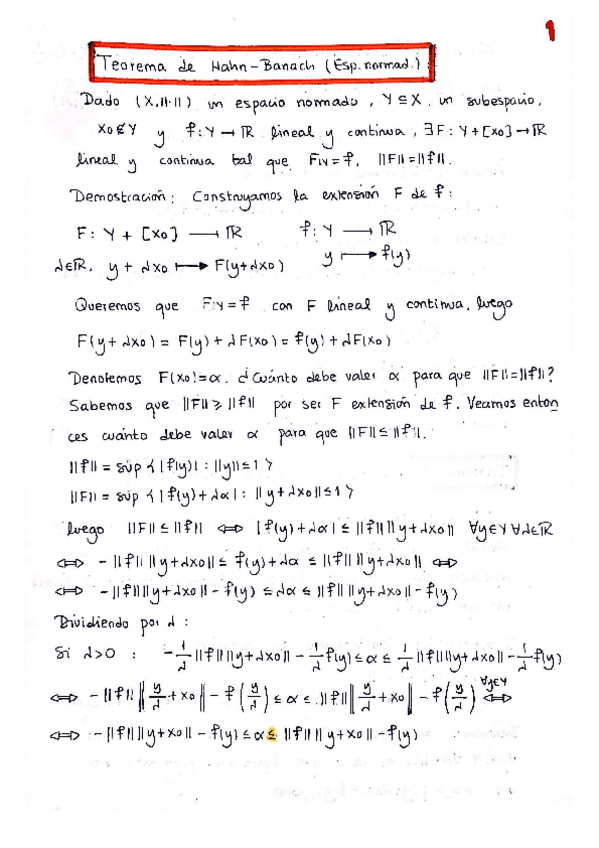 1
Teorema de Hahn-Banach (Esp. normad.)
Dado (X,||·||) un espacio normado, Y⊆X un subespacio,
x0∉Y y f:Y→ℝ lineal y continua, ∃F:Y+[x0]→ℝ
lineal y continua tal que F|Y=f, ||F||=||f||.
Demostración: Construyamos la extensión F de f:
F: Y + [x0] ⟶ ℝ f: Y ⟶ ℝ
λ∈ℝ, y + λx0 ⟼ F(y+λx0) y ⟼ f(y)
Queremos que F|Y=f con F lineal y continua, luego
F(y+λx0) = F(y)+λF(x0) = f(y)+λF(x0)
Denotemos F(x0)=α. ¿Cuánto debe valer α para que ||F||=||f||?
Sabemos que ||F||⩾||f|| por ser F extensión de f. Veamos enton
ces cuánto debe valer α para que ||F||≤||f||.
||f|| = sup {|f(y)| : ||y||≤1}
||F|| = sup {|f(y)+λα| : ||y+λx0||≤1}
luego ||F||≤||f|| ⟺ |f(y)+λα| ≤ ||f|| ||y+λx0|| ∀y∈Y ∀λ∈ℝ
⟺ -||f|| ||y+λx0|| ≤ f(y)+λα ≤ ||f|| ||y+λx0|| ⟺
⟺ -||f|| ||y+λx0|| - f(y) ≤ λα ≤ ||f|| ||y+λx0|| - f(y)
Dividiendo por λ:
Si λ>0 : -1/λ ||f|| ||y+λx0|| - 1/λ f(y) ≤ α ≤ 1/λ ||f|| ||y+λx0|| - 1/λ f(y)
⟺ -||f|| ||y/λ + x0|| - f(y/λ) ≤ α ≤ ||f|| ||y/λ + x0|| - f(y/λ) ∀y∈Y ⟺
⟺ -||f|| ||y+x0|| - f(y) ≤ α ≤ ||f|| ||y+x0|| - f(y)